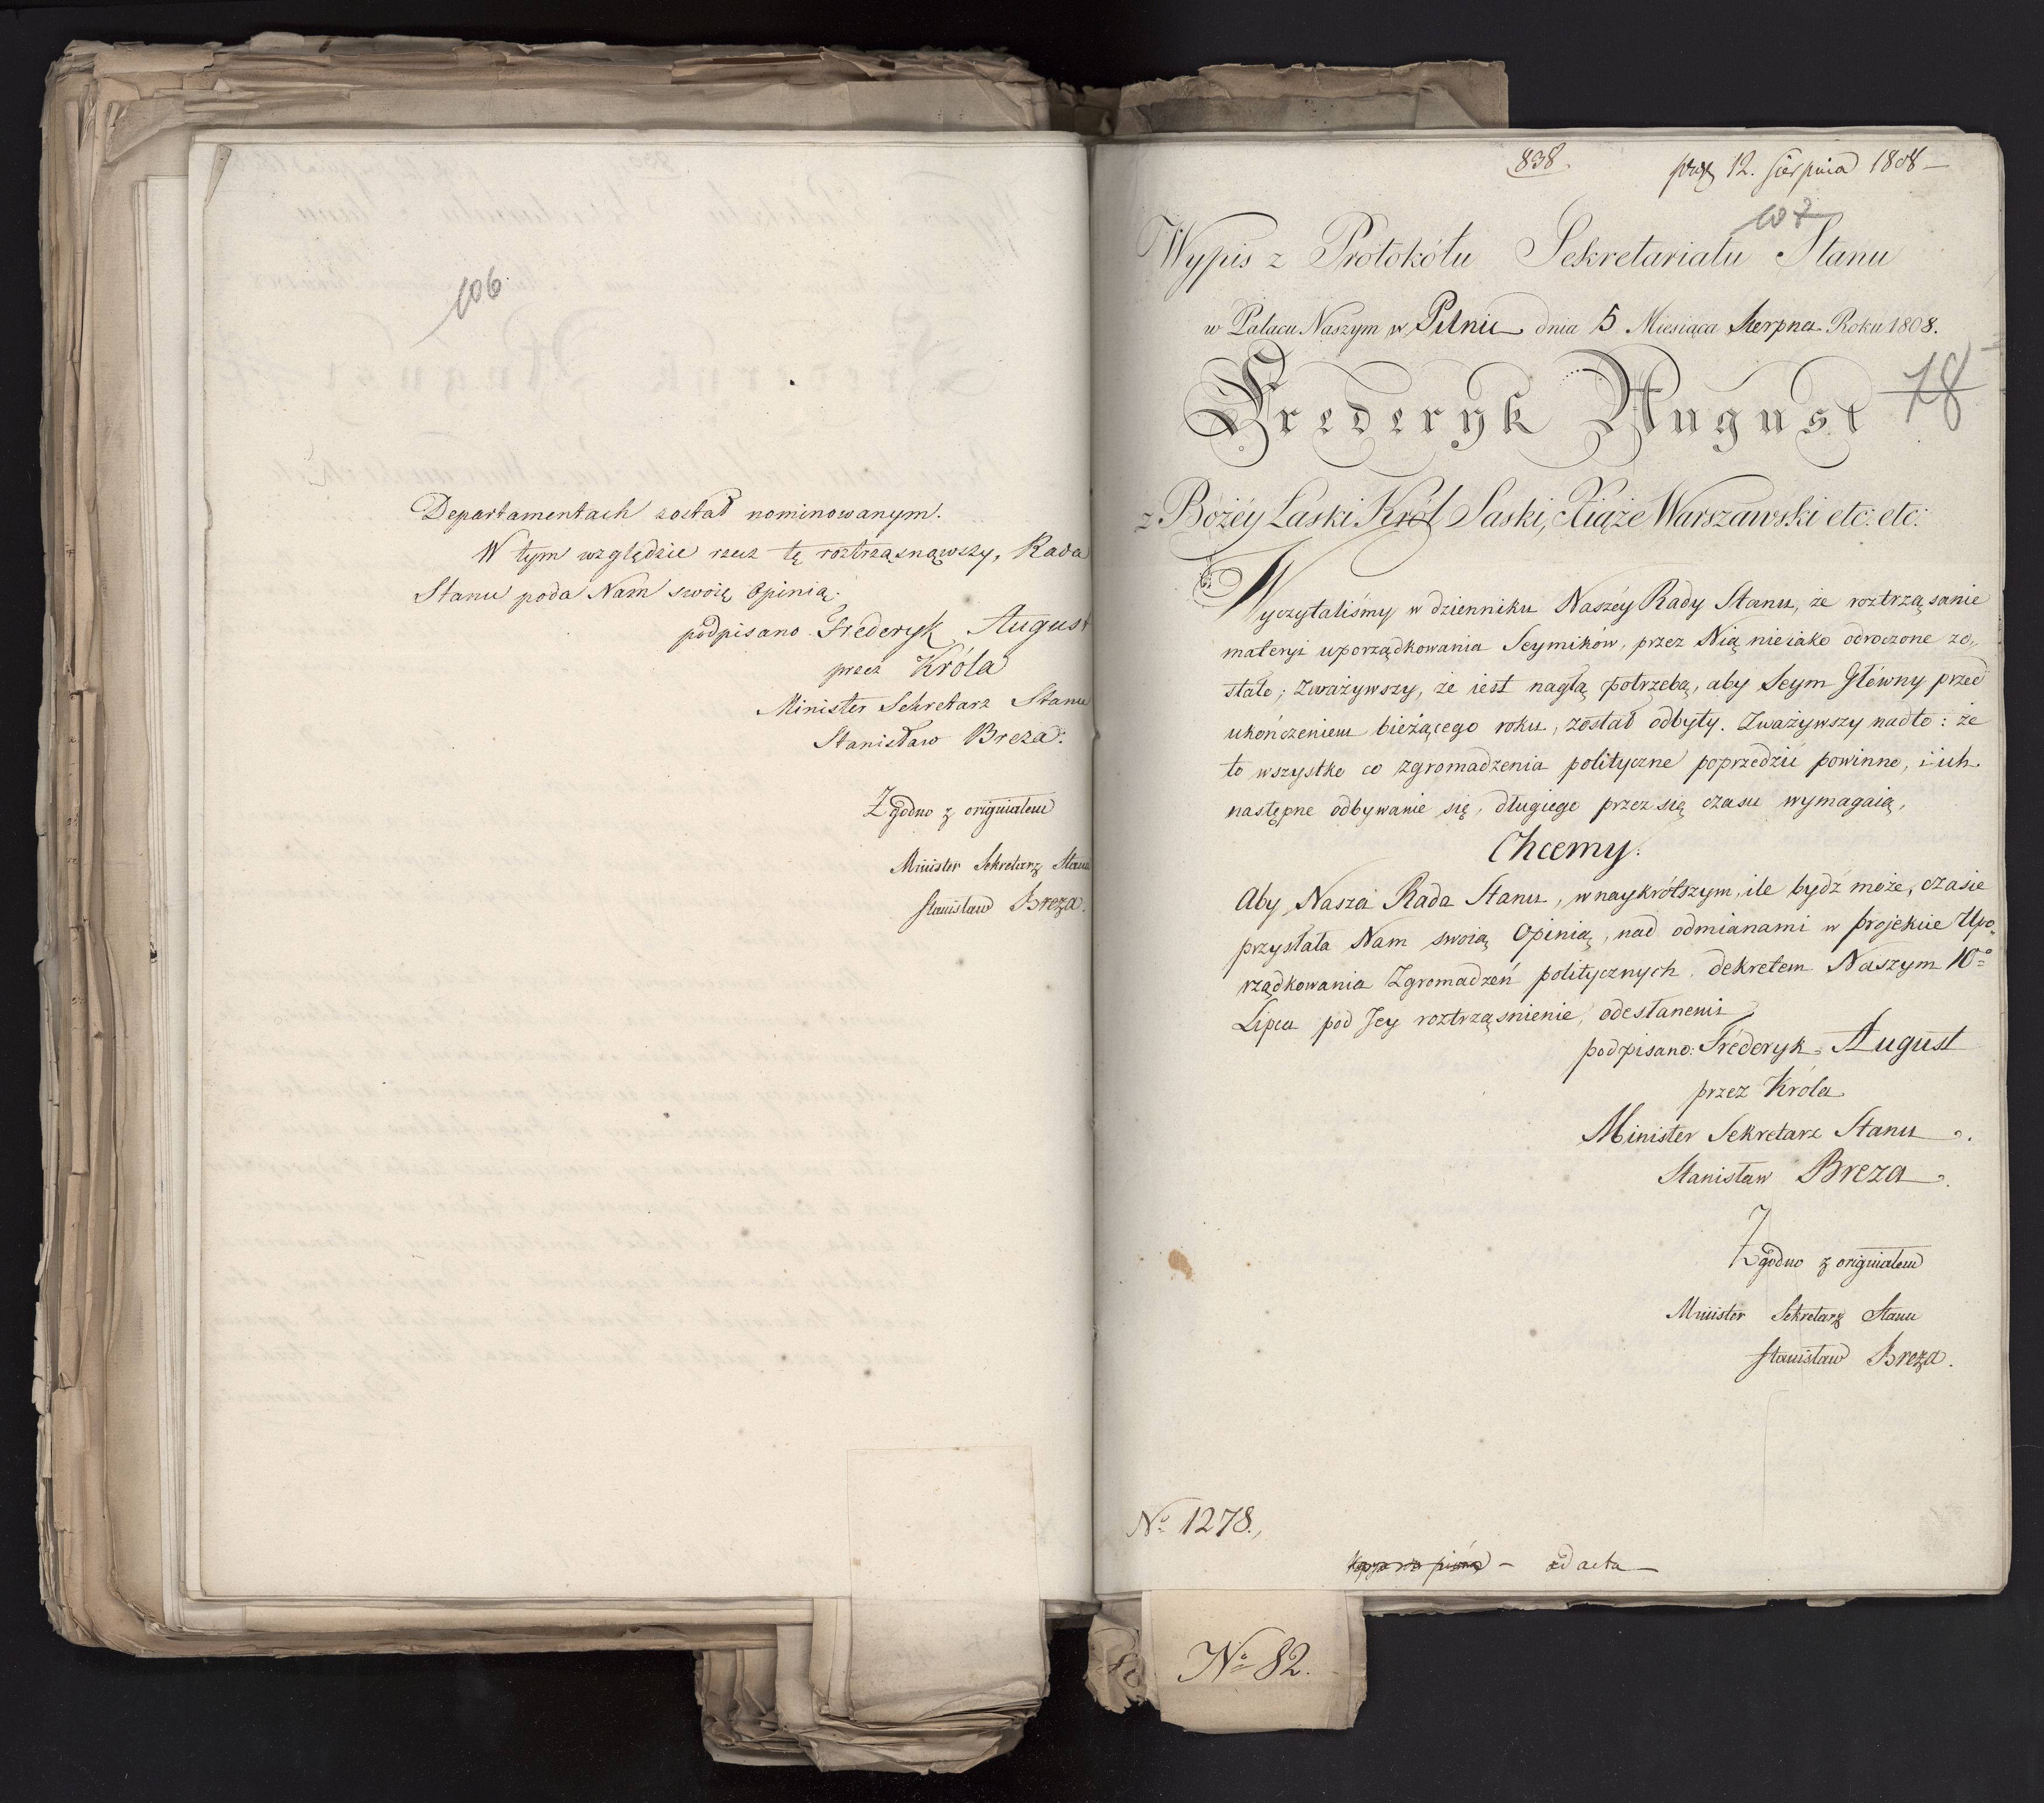 106
Departamentach został nominowanym.
W tym względzie rzecz tę roztrząsnąwszy, Rada
Stanu poda Nam swoię Opinią.
podpisano Frederyk August
przez Króla
Minister Sekretarz Stanu
Stanisław Breza.
Zgodno z originałem
Minister Sekretarz Stanu
Stanisław Breza.
838.
12. Sierpnia 1808 –
107
Wypis z Protokółu Sekretariatu Stanu
w Pałacu Naszym w Pilnic dnia 5 Miesiąca Sierpna Roku 1808.
78
Frederyk August
z Bożéy Łaski Król Saski, Xiąże Warszawski etc: etc:
Wyczytaliśmy w dzienniku Naszéy Rady Stanu, że roztrząsanie
materyi uporządkowania Seymików, przez Nią nieiako odroczone zo„
stało; Zważywszy, że iest nagłą potrzebą, aby Seym Główny przed
ukończeniem bieżącego roku, został odbyty. Zważywszy nadto: że
to wszystko co zgromadzenia polityczne poprzedzić powinno, i ich
następne odbywanie się, długiego przez się czasu wymagaią,
Chcemy:
Aby Nasza Rada Stanu, w naykrótszym, ile bydź może, czasie
przysłała Nam swoią Opinią, nad odmianami w projekcie Upo„
rządkowania Zgromadzeń politycznych, dekretem Naszym 10º
Lipca pod Jey roztrząsnienie, odesłanemi
podpisano: Fréderyk August
przez Króla
Minister Sekretarz Stanu
Stanisław Breza.
Zgodno z originałem
Minister Sekretarz Stanu
Stanisław Breza.
Nº 1278.
– ad acta –
Nº 82.